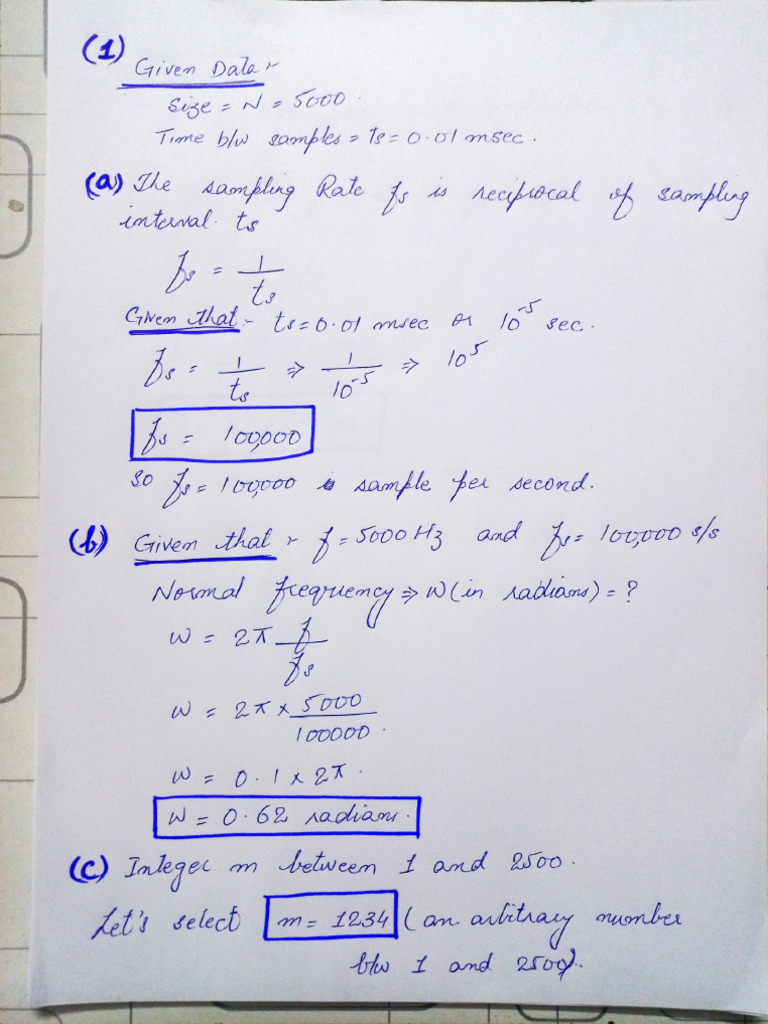 (1)
Given Data :-
Size = N = 5000.
Time b/w samples = ts = 0.01 msec.
(a) The sampling Rate fs is reciprocal of sampling
interval ts
fs = 1/ts
Given that :- ts = 0.01 msec or 10^-5 sec.
fs = 1/ts ⇒ 1/10^-5 ⇒ 10^5
fs = 100,000
so fs = 100,000 sample per second.
(b) Given that :- f = 5000 Hz and fs = 100,000 s/s
Normal frequency ⇒ W (in radians) = ?
W = 2π f/fs
W = 2π × 5000/100000.
W = 0.1 × 2π.
W = 0.62 radians.
(c) Integer m between 1 and 2500.
Let's select m = 1234 (an arbitrary number
b/w 1 and 2500).